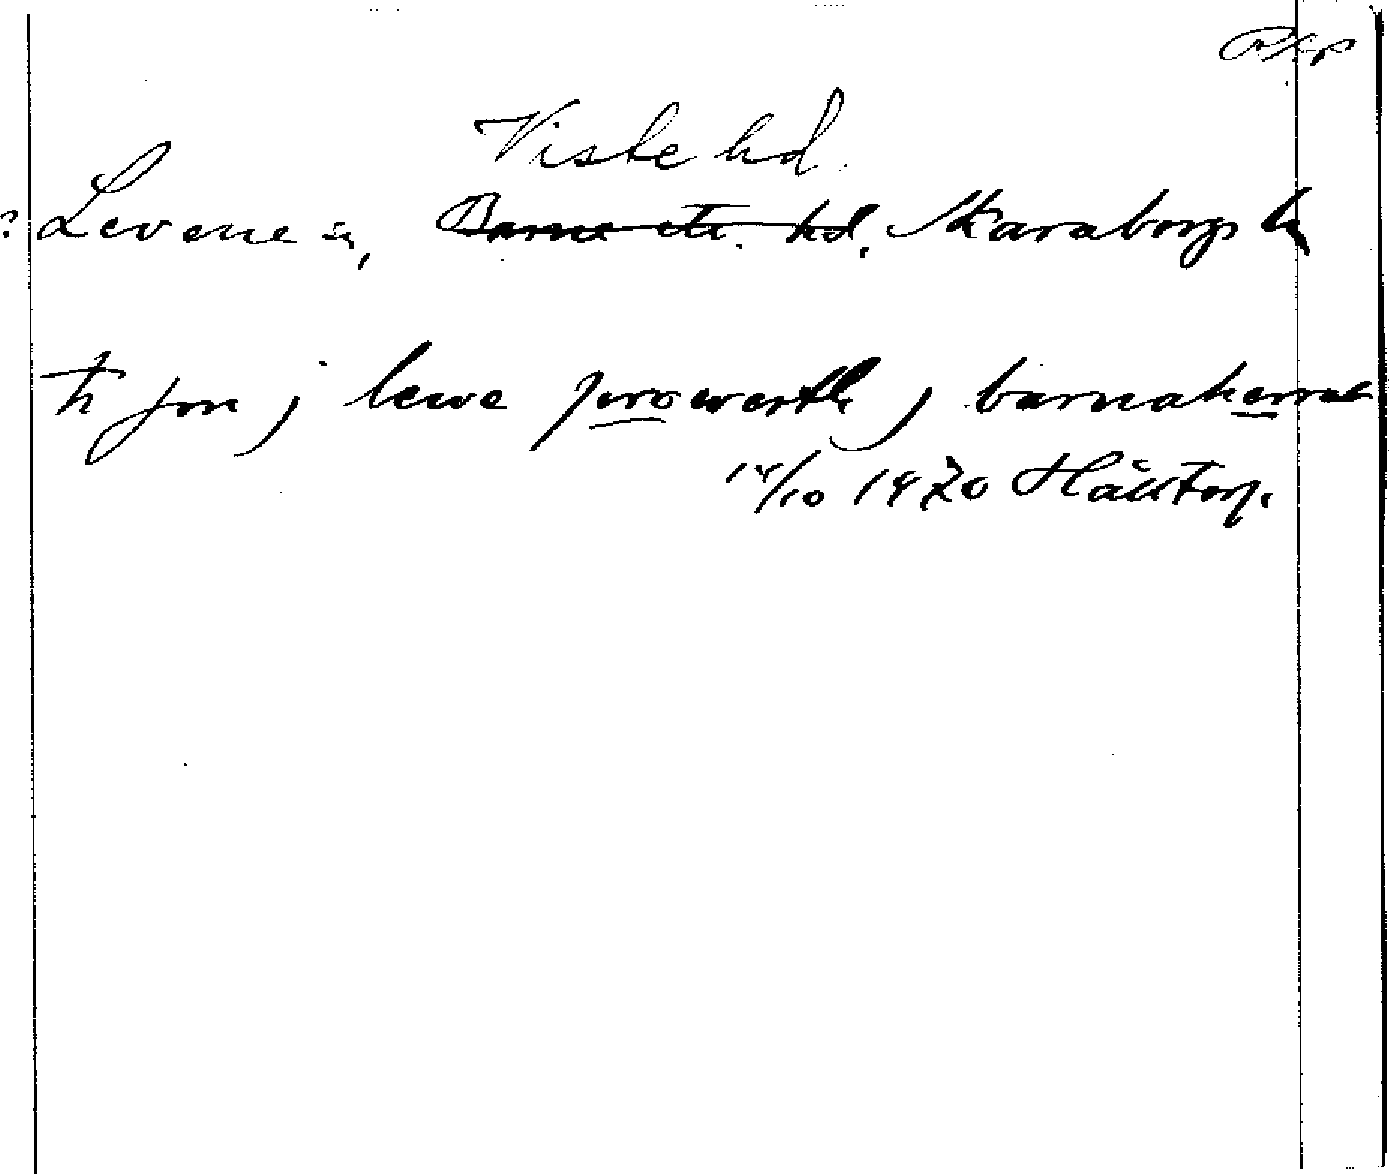 Rkp
Viste hd.
? Levene sn, Barne etc. hd. Skaraborgs l.
h jon j lewe prowesth j barnaherrat
14/10 1470 Hålltorp.